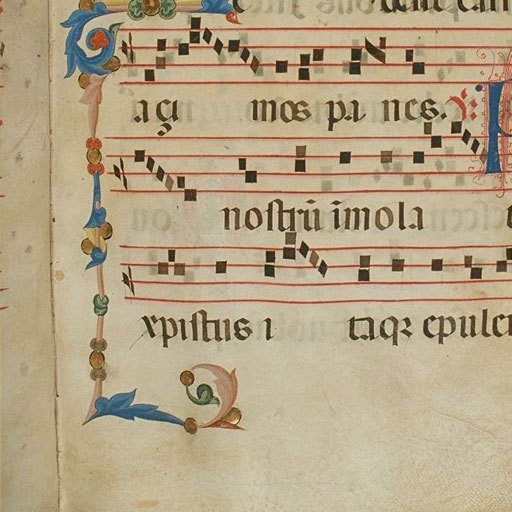 açi mos pa nes. ℣
nostrū īmola
xpistus i taqꝫ epule